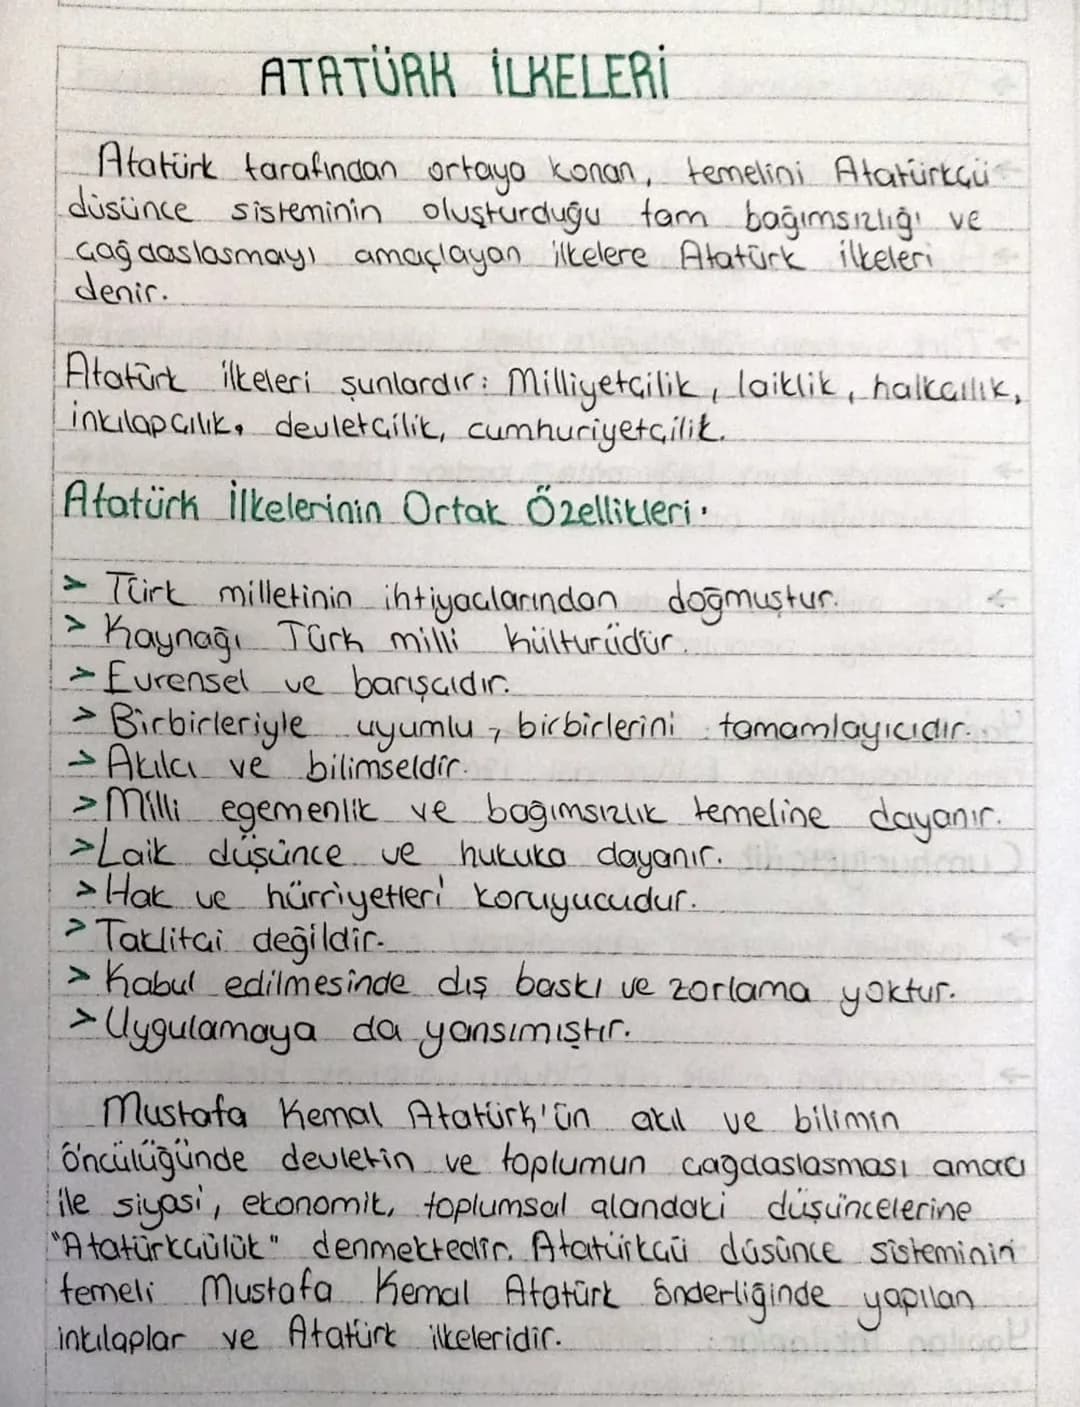 ATATÜRK İLKELERİ
Atatürk tarafından ortaya konan, temelini Atatürkçü
düşünce sisteminin oluşturduğu tam bağımsızlığı ve
çağdaşlaşmayı amaçlayan ilkelere Atatürk ilkeleri
denir.
Atatürk ilkeleri şunlardır: Milliyetçilik, laiklik, halkçılık,
inkılapçılık, devletçilik, cumhuriyetçilik.
Atatürk İlkelerinin Ortak Özellikleri:
> Türk milletinin ihtiyaçlarından doğmuştur.
> Kaynağı Türk milli kültürüdür.
> Evrensel ve barışçıdır.
> Birbirleriyle uyumlu, birbirlerini tamamlayıcıdır.
> Akılcı ve bilimseldir.
> Milli egemenlik ve bağımsızlık temeline dayanır.
> Laik düşünce ve hukuka dayanır.
> Hak ve hürriyetleri koruyucudur.
> Taklitçi değildir.
> Kabul edilmesinde dış baskı ve zorlama yoktur.
> Uygulamaya da yansımıştır.
Mustafa Kemal Atatürk'ün akıl ve bilimin
öncülüğünde devletin ve toplumun çağdaşlaşması amacı
ile siyasi, ekonomik, toplumsal alandaki düşüncelerine
"Atatürkçülük" denmektedir. Atatürkçü düşünce sisteminin
temeli Mustafa Kemal Atatürk önderliğinde yapılan
inkılaplar ve Atatürk ilkeleridir.